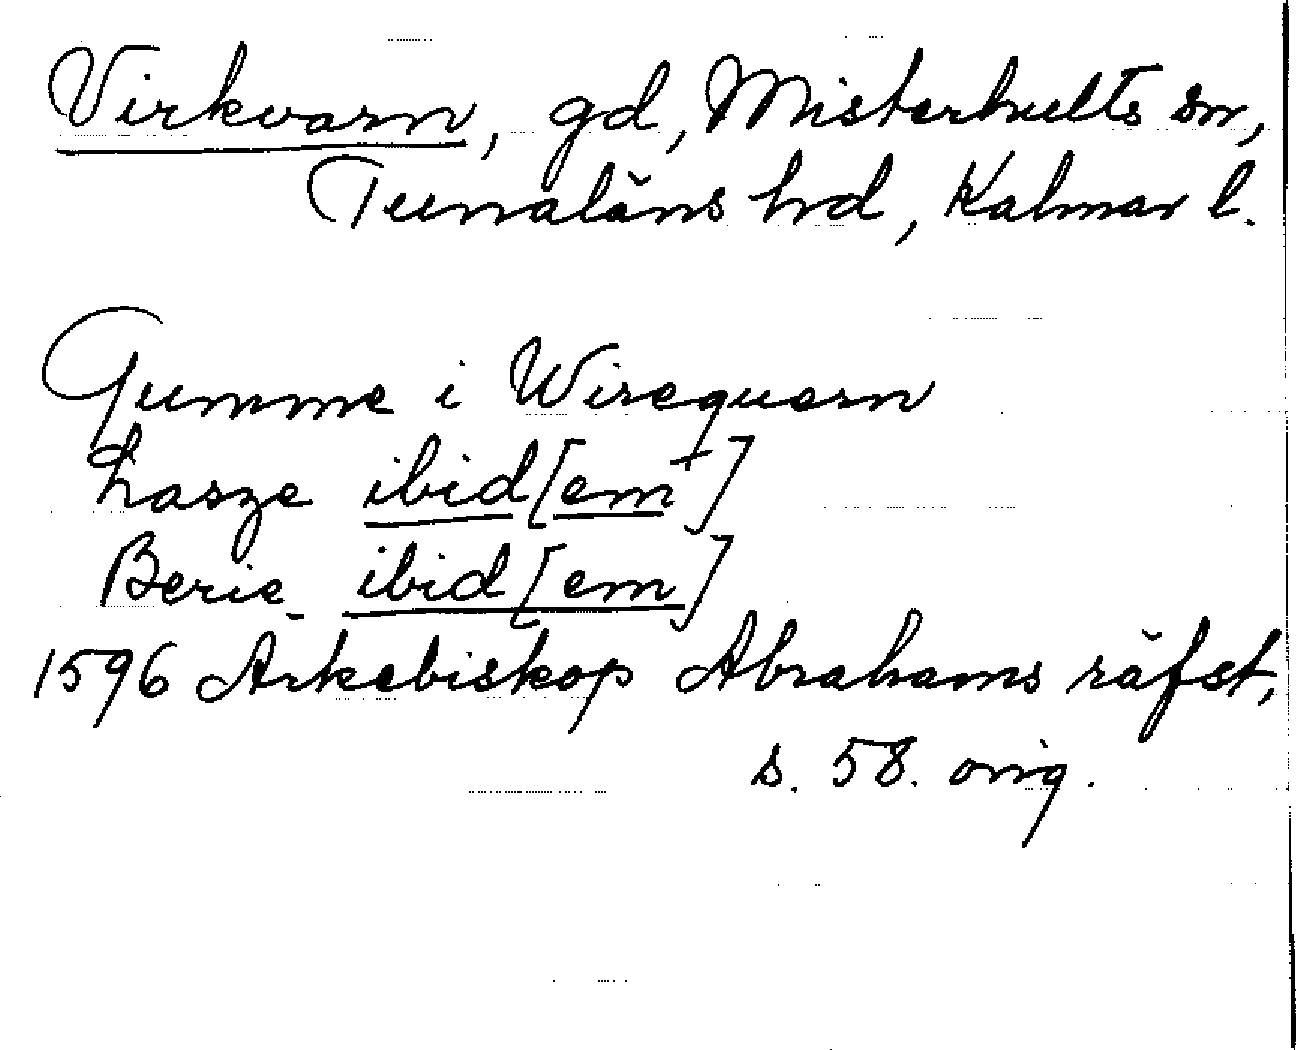 Virkvarn, gd, Misterhults sn,
Tunaläns hd, Kalmar l.
Gumme i Wirequern
Lasze ibid[em]
Berie ibid[em]
1596 Ärkebiskop Abrahams räfst,
s. 58. orig.